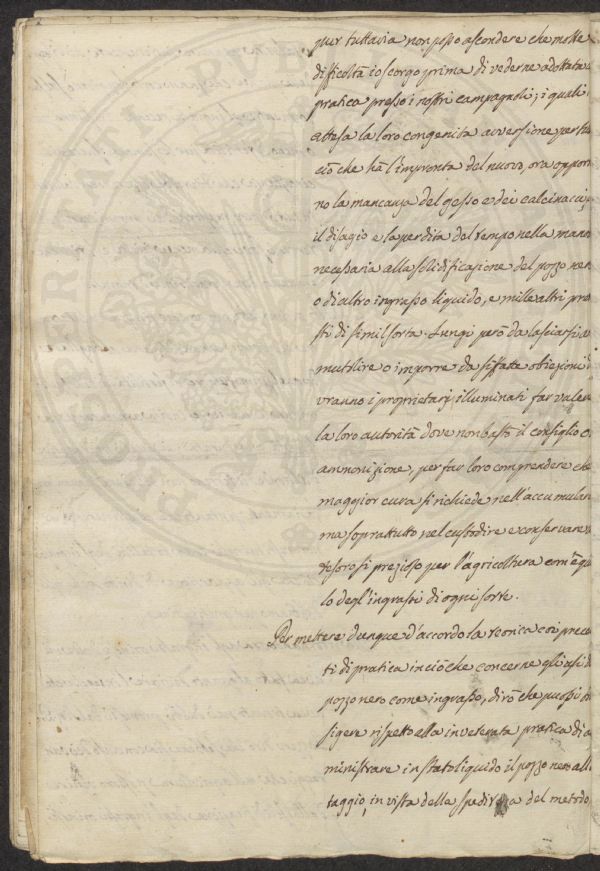 pur tuttavia non posso ascondere che molte
difficoltà io scorgo prima di vederne adottata
pratica presso i nostri campagnoli; i quali
attesa la loro congenita avversione per tu
ciò che ha l'impronta del nuovo, ora oppor
no la mancanza del gesso e dei calcinacci,
il disagio e la perdita del tempo nella mano
necessaria alla solidificazione del pozzo ner
o di altro ingrasso liquido, e mille altri pre
sti di simil sorta. Lungi però da lasciarsi a
mutolire o imporre da siffatte obiezioni d
vranno i proprietarj illuminati far valer
la loro autorità dove non basti il consiglio o
ammonizione, per far loro comprendere che
maggior cura si richiede nell'accumular
ma soprattutto nel custodire e conservare
tesoro sì prezioso per l'agricoltura com'è qu
lo degl'ingrassi di ogni sorte.
Per mettere dunque d'accordo la teorica coi prece
ti di pratica in ciò che concerne gli usi d
pozzo nero come ingrasso, dirò che puossi
sigere rispetto alla inveterata pratica di a
ministrare in stato liquido il pozzo nero all
taggio, in vista della speditezza del metodo